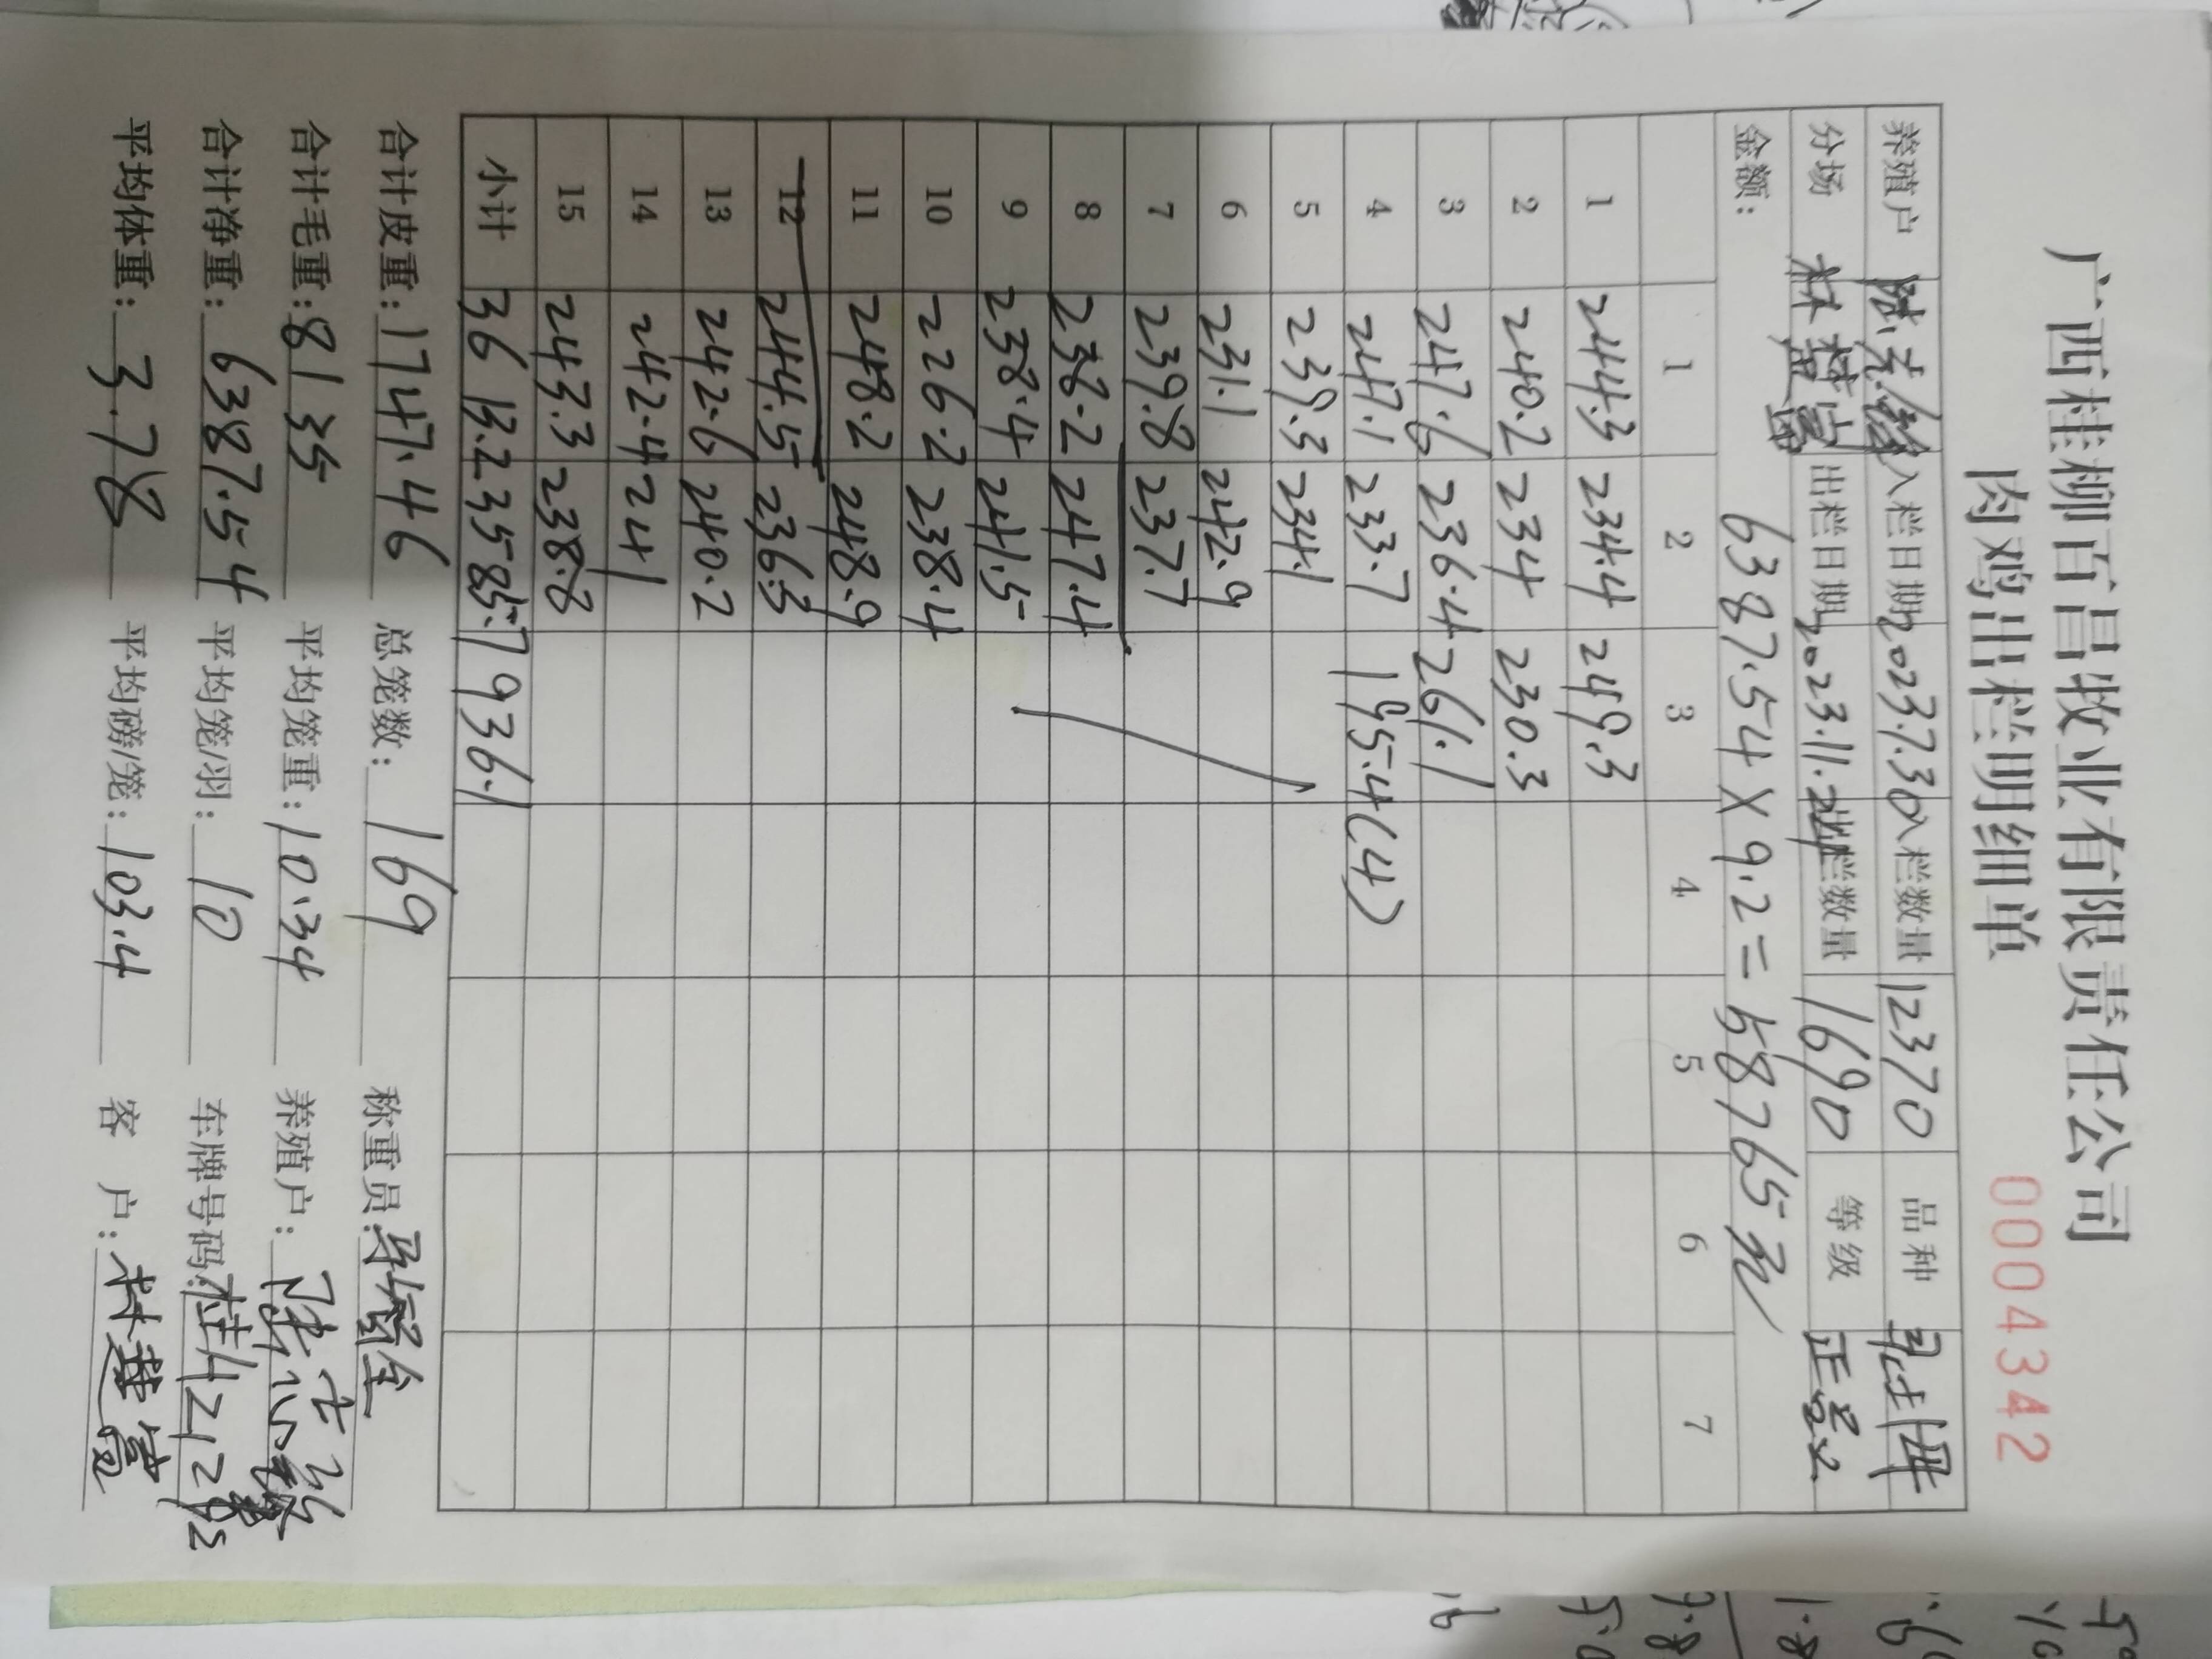 广西桂柳百昌牧业有限责任公司
肉鸡出栏明细单
0004342
养殖户 入栏日期 2023.7.30 入栏数量 12370 品种
分场 出栏日期 2023.11.24 出栏数量 1690 等级 正品
金额: 6387.54×9.2=58765元
1 2 3 4 5 6 7
1 244.3 234.4 249.3
2 240.2 234 230.3
3 247.6 236.4 261.1
4 247.1 233.7 195.4(4)
5 239.3 234.1
6 231.1 242.9
7 239.8 237.7
8 238.2 247.4
9 238.4 241.5
10 226.2 238.4
11 248.2 248.9
12 244.5 236.3
13 242.6 240.2
14 242.4 241
15 243.3 238.8
小计 3613.2 3585.7 936.1
合计皮重: 1747.46 总笼数: 169 称重员:
合计毛重: 8135 平均笼重: 10.34 养殖户:
合计净重: 6387.54 平均笼/羽: 10 车牌号码:
平均体重: 3.78 平均磅/笼: 103.4 客 户: